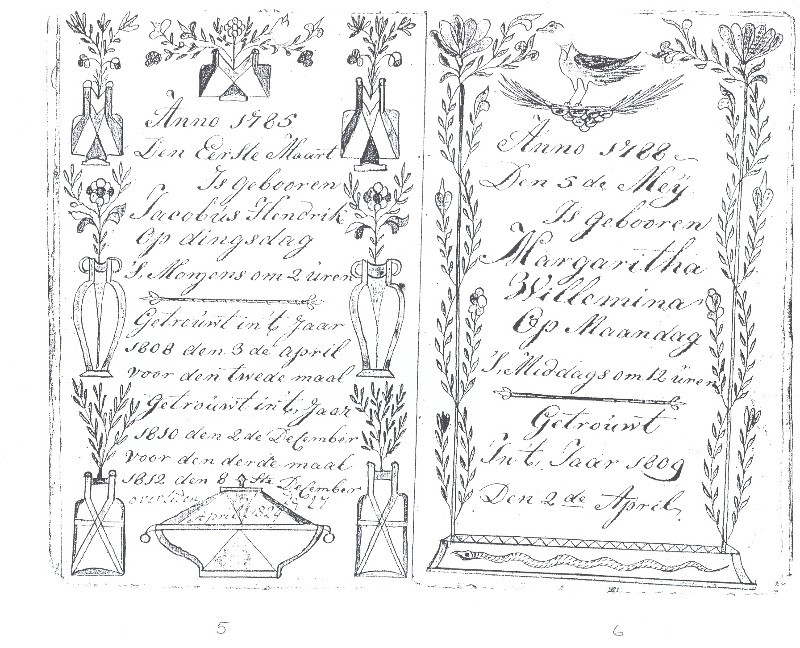 Anno 1785
Den Eerste Maart
Is gebooren
Jacobus Hendrik
Op dingsdag
'S, Morgens om 2 uren
Getrouwt in't, Jaar
1808 den 3 de april
voor den twede maal
Getrouwt in't, Jaar
1810 den 2 de December
voor den derde maal
1812 den 8 ste December
overleden 27
april 1827
Anno 1788
Den 5 de Meÿ
Is gebooren
Margaritha
Willemina
Op Maandag
'S, Middags om 12 uren
Getrouwt
In't, Jaar 1809
Den 2 de April
5
6